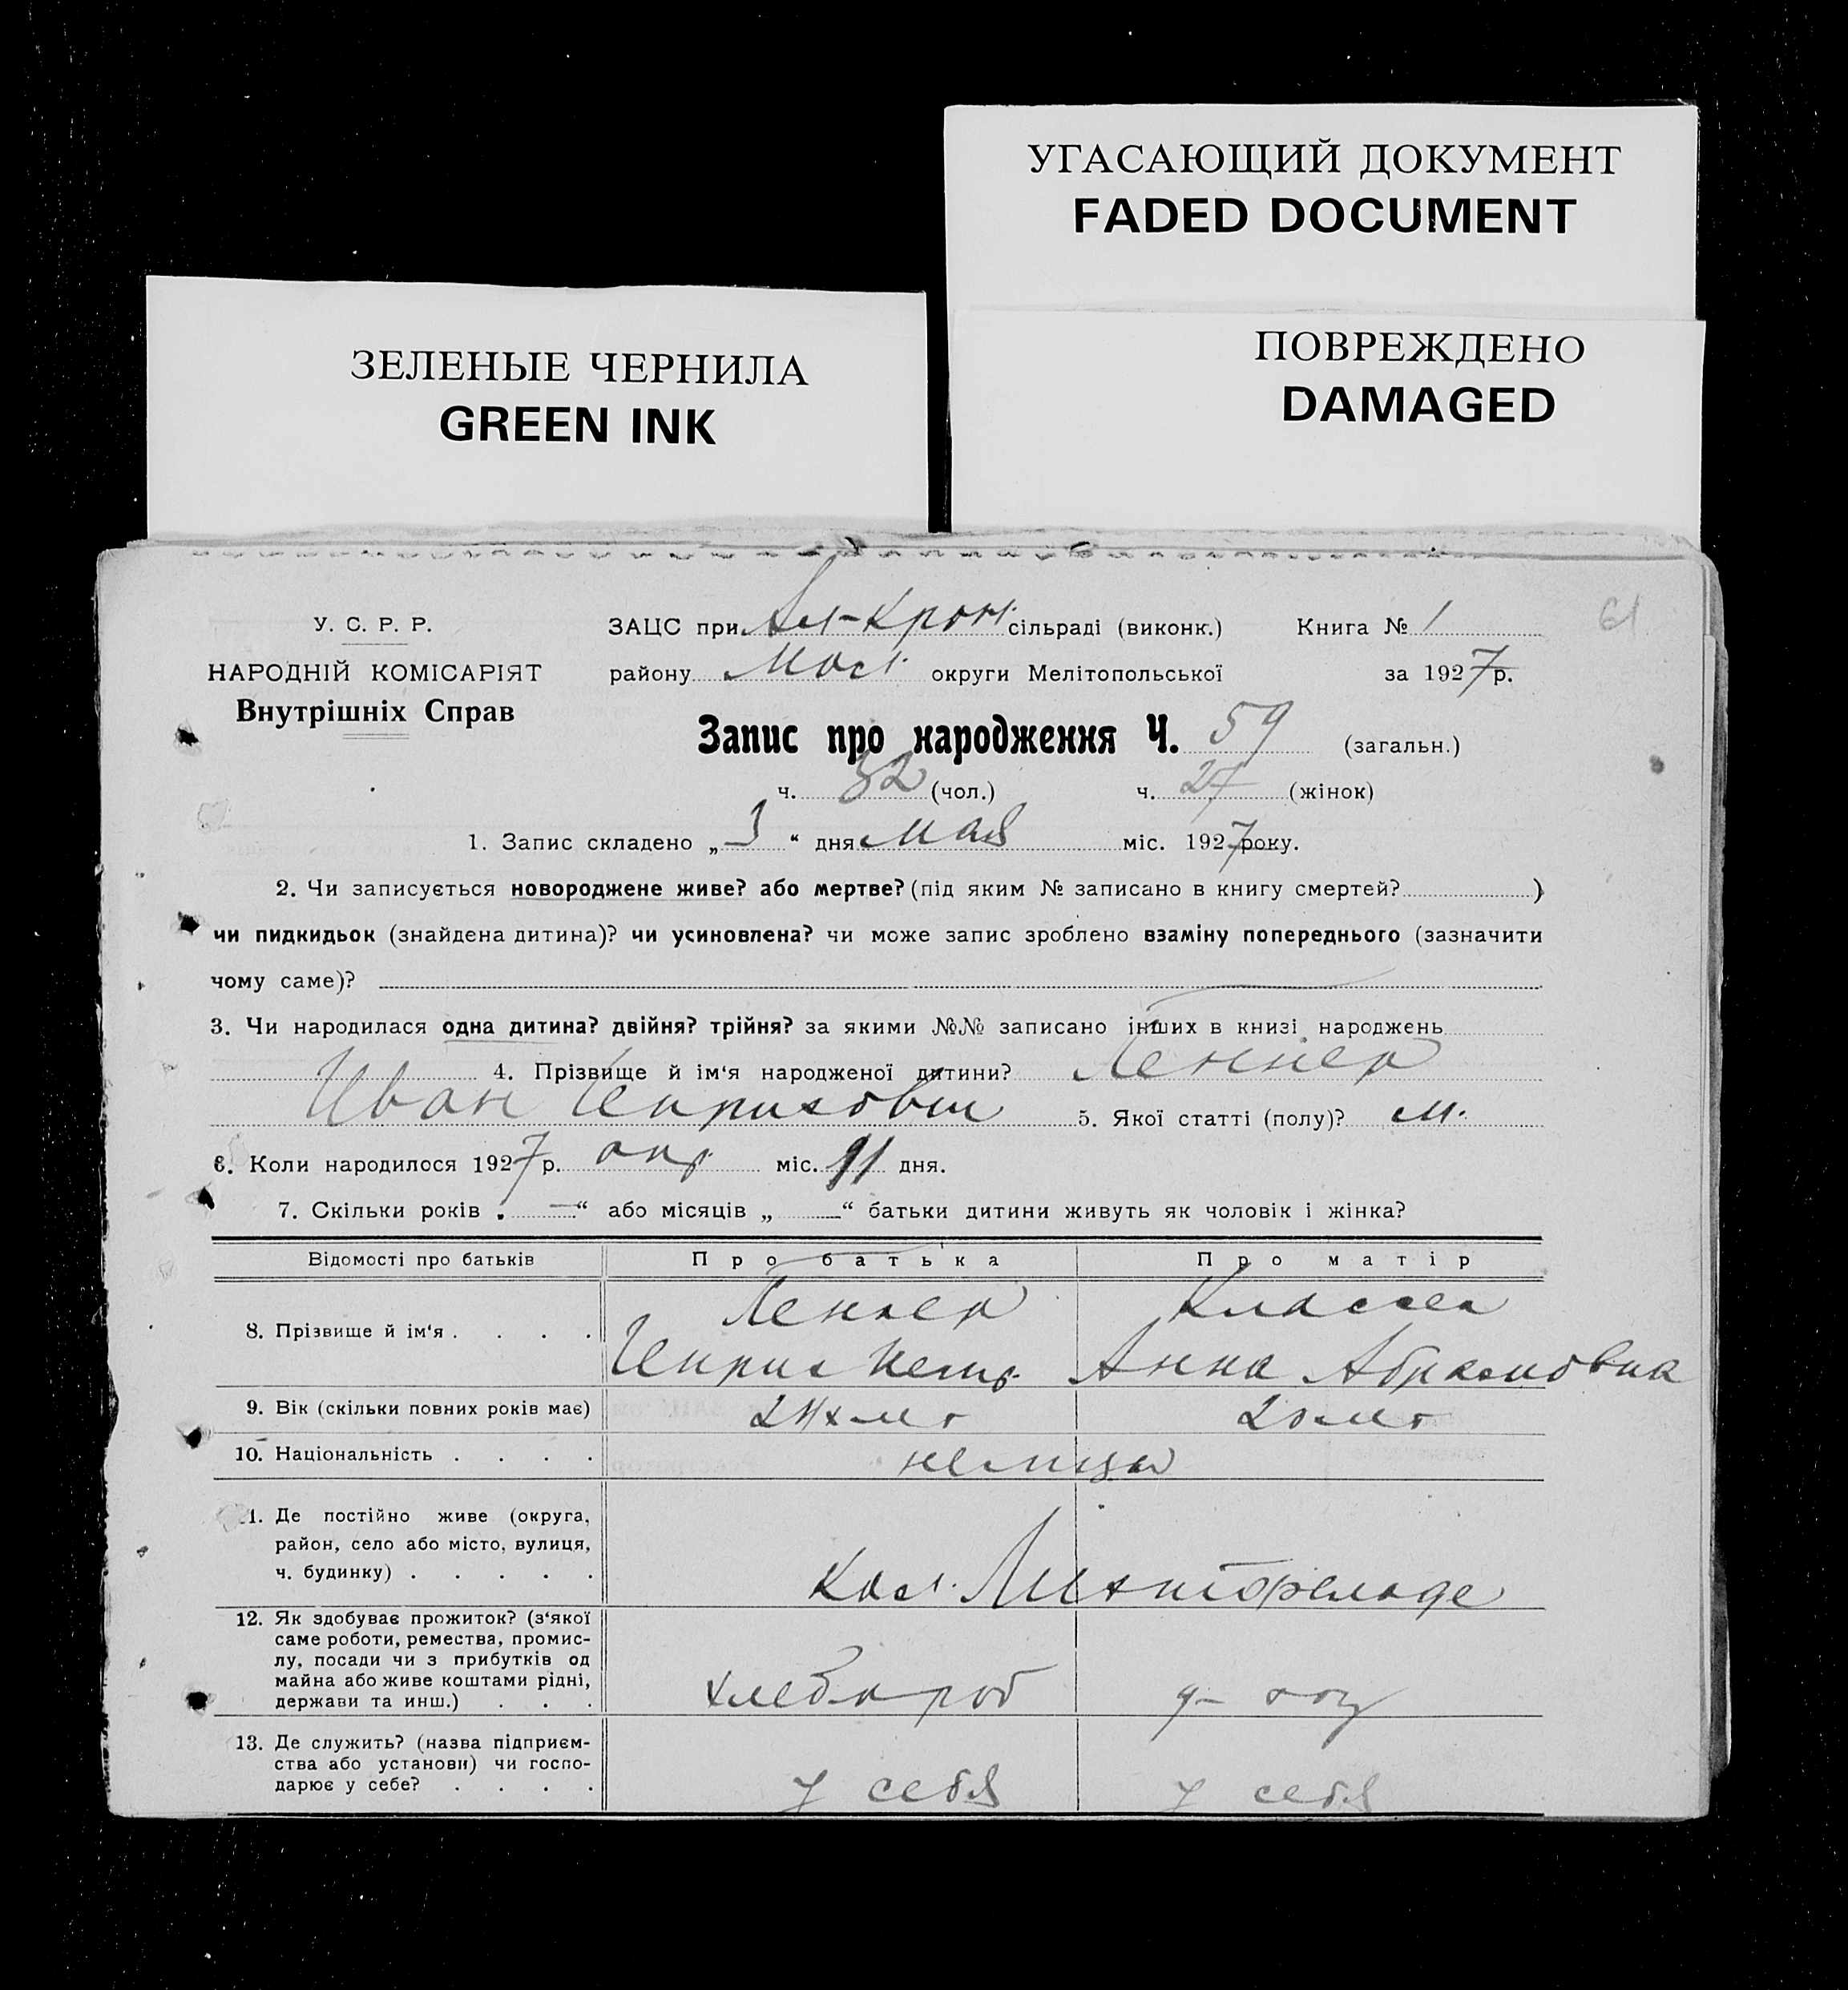 УГАСАЮЩИЙ ДОКУМЕНТ
FADED DOCUMENT
ЗЕЛЕНЫЕ ЧЕРНИЛА
GREEN INK
ПОВРЕЖДЕНО
DAMAGED
61
У. С. Р. Р.
НАРОДНІЙ КОМІСАРІЯТ
Внутрішніх Справ
ЗАЦС при сільраді (виконк.) Книга № 1
району Мол. округи Мелітопольської за 1927 р.
Запис про народження Ч. 59 (загальн.)
ч. 32 (чол.) ч. 27 (жінок)
1. Запис складено „3“ дня мая міс. 1927 року.
2. Чи записується новороджене живе? або мертве? (під яким № записано в книгу смертей? )
чи пидкидьок (знайдена дитина)? чи усиновлена? чи може запис зроблено взаміну попереднього (зазначити
чому саме)?
3. Чи народилася одна дитина? двійня? трійня? за якими №№ записано інших в книзі народжень
4. Прізвище й ім‘я народженої дитини? Леннер
Иван 5. Якої статті (полу)? м.
6. Коли народилося 1927 р. апр. міс. 11 дня.
7. Скільки років „ —“ або місяців „ “ батьки дитини живуть як чоловік і жінка?
Відомості про батьків Про батька Про матір
8. Прізвище й ім‘я . . . . Леннер Классен
Петр. Анна Абрамовна
9. Вік (скільки повних років має) лет 20 лет
10. Національність . . . . немцы
11. Де постійно живе (округа,
район, село або місто, вулиця,
ч. будинку) . . . . . Кол.
12. Як здобуває прожиток? (з‘якої
саме роботи, ремества, промис-
лу, посади чи з прибутків од
майна або живе коштами рідні,
держави та инш.) . . . хлебороб
13. Де служить? (назва підприєм-
ства або установи) чи госпо-
дарює у себе? . . . . у себя у себя